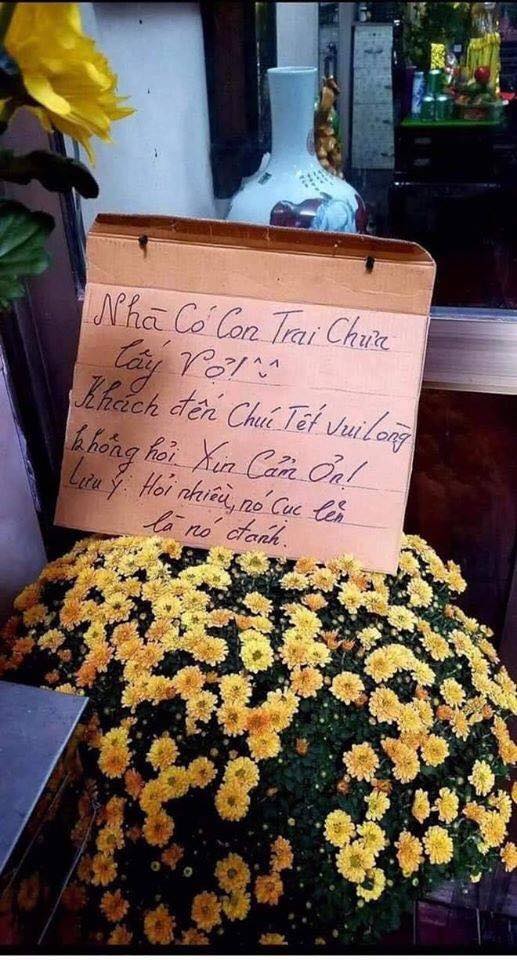 Nhà Có Con Trai Chưa
lấy Vợ! ^^
Khách đến Chúc Tết vui lòng
không hỏi. Xin Cảm Ơn!
Lưu Ý: Hỏi nhiều, nó Cục lên
là nó đánh.